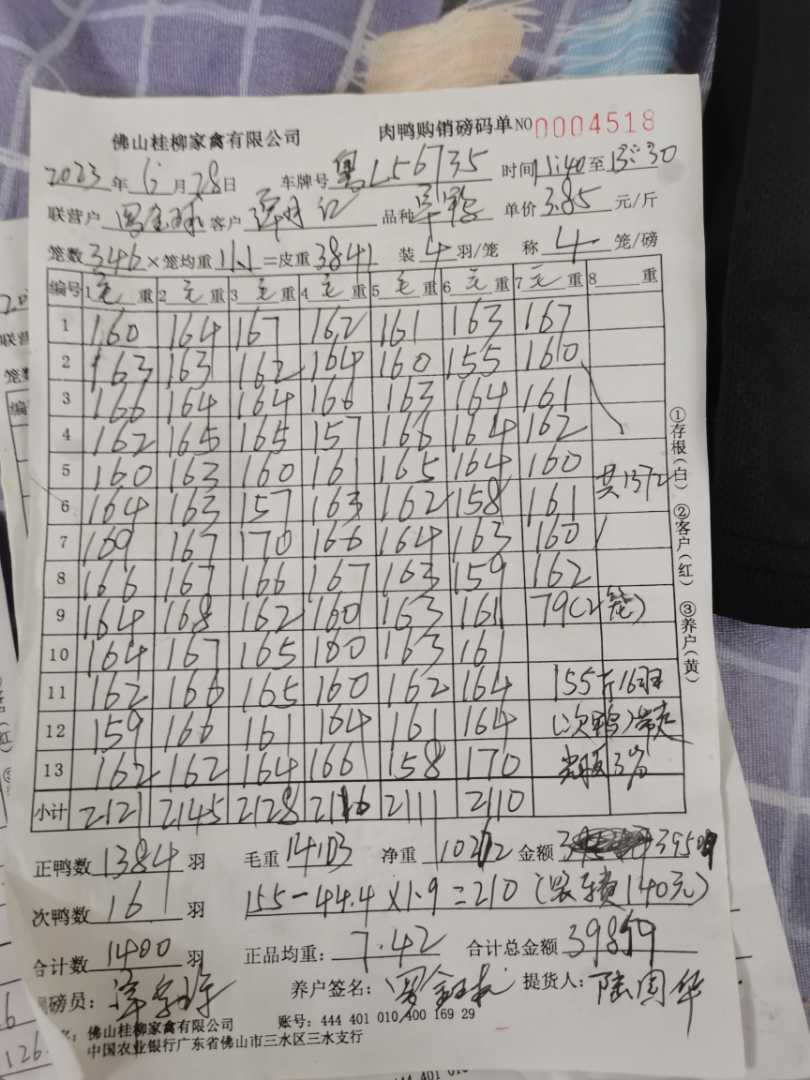 佛山桂柳家禽有限公司 肉鸭购销磅码单 NO 0004518
2023年6月28日 车牌号 粤L56735 时间 11:40至13:30
联营户 客户 品种 单价 3.85 元/斤
笼数 346 ×笼均重 11.1 =皮重 3841 装 4 羽/笼 称 4 笼/磅
编号 1 毛 重 2 毛 重 3 毛 重 4 毛 重 5 毛 重 6 毛 重 7 毛 重 8 重
1 160 164 167 162 161 163 167
2 163 163 162 164 160 155 160
3 166 164 164 166 163 164 161
4 162 165 165 157 166 164 162
5 160 163 160 161 165 164 160
6 164 163 157 163 162 158 161 共1372
7 169 167 170 166 164 163 160
8 166 167 166 167 163 159 162
9 164 168 162 160 163 161 79(2笼)
10 164 167 165 160 163 161
11 162 166 165 160 162 164 155斤16羽
12 159 166 161 164 161 164 (次鸭)
13 162 162 164 166 158 170
小计 2121 2145 2128 2116 2111 2110
正鸭数 1384 羽 毛重 14103 净重 10262 金额 39509
次鸭数 16 羽 155-44.4×1.9=210 (装车费140元)
合计数 1400 羽 正品均重: 7.42 合计总金额 39859
磅员: 养户签名: 提货人: 陆国华
佛山桂柳家禽有限公司 账号: 444 401 010 400 169 29
中国农业银行广东省佛山市三水区三水支行
①存根(白) ②客户(红) ③养户(黄)